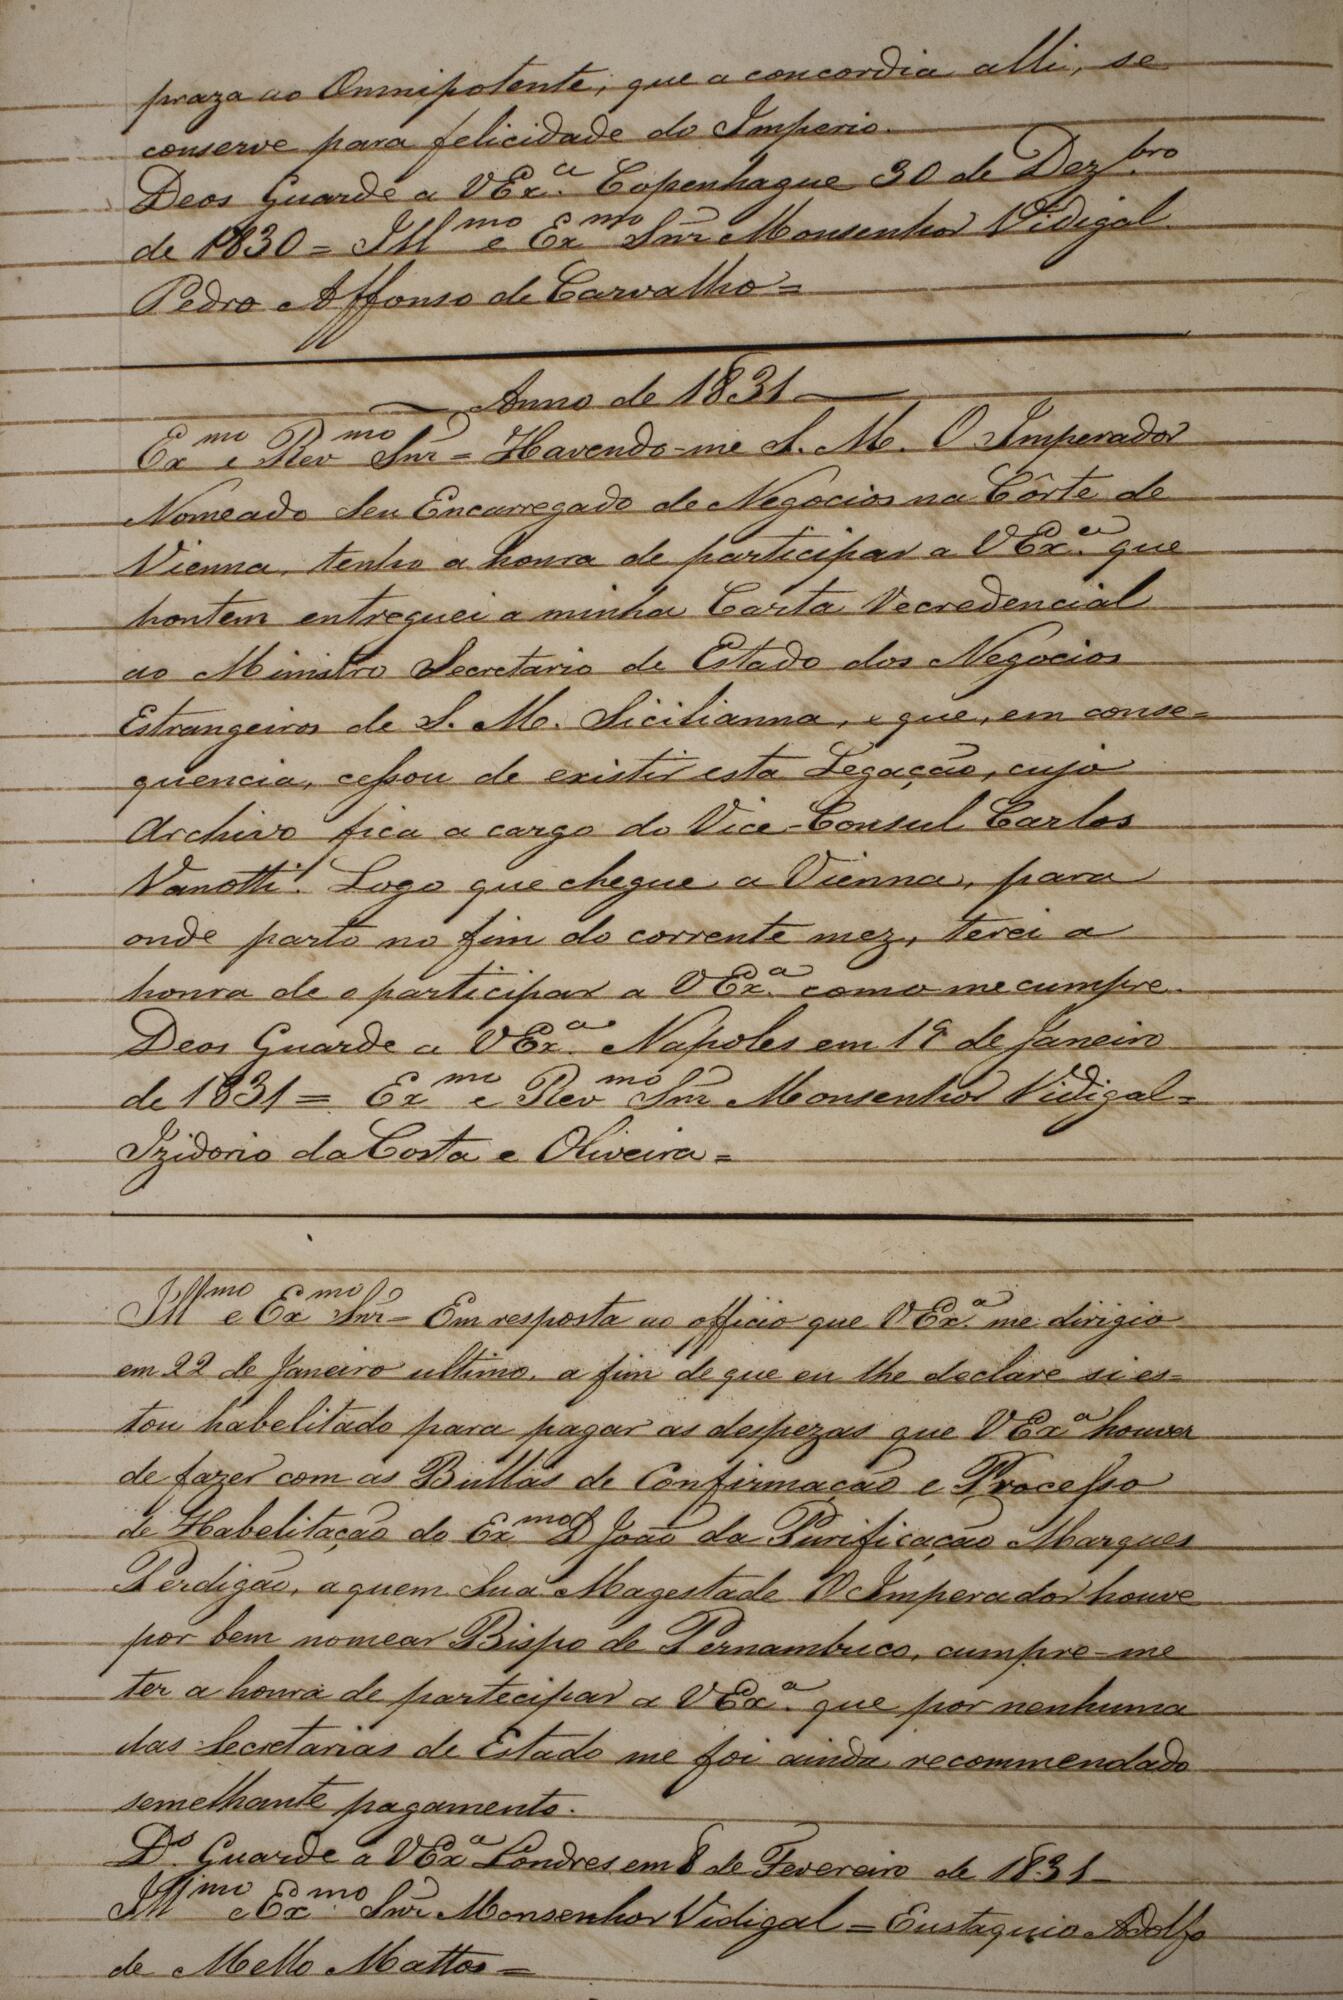 praza ao Omnipotente, que a concordia alli, se
conserve para felicidade do Imperio.
Deos Guarde a VExª. Copenhague 30 de Dezbro.
de 1830 = Illmo e Exmo Snr Monsenhor Vidigal.
Pedro Affonso de Carvalho =
Anno de 1831
Exmo e Revmo Snr = Havendo-me S. M. O Imperador
Nomeado Seu Encarregado de Negocios na Côrte de
Vienna, tenho a honra de participar a VExª. que
hontem entreguei a minha Carta Recredencial
ao Ministro Secretario de Estado dos Negocios
Estrangeiros de S. M. Sicilianna, e que, em conse=
quencia, cessou de existir esta Legação, cujo
Archivo fica a cargo do Vice-Consul Carlos
Vanotti. Logo que chegue a Vienna, para
onde parto no fim do corrente mez, terei a
honra de o participar a VExª. como me cumpre.
Deos Guarde a VExª. Napoles em 19 de Janeiro
de 1831 = Exmo e Revmo Snr Monsenhor Vidigal =
Izidorio da Costa e Oliveira =
Illmo e Exmo Snr = Em resposta ao officio que VExª. me dirigio
em 22 de Janeiro ultimo, a fim de que eu lhe declare si es=
tou habelitado para pagar as despezas que VExª houver
de fazer com as Bullas de Confirmação e Processo
de Habelitação do Exmo D João da Purificação Marques
Perdigão, a quem Sua Magestade O Imperador houve
por bem nomear Bispo de Pernambuco, cumpre-me
ter a honra de partecipar a VExª. que por nenhuma
das Secretarias de Estado me foi ainda recommendado
semelhante pagamento.
Ds. Guarde a VExª Londres em 8 de Fevereiro de 1831 =
Illmo e Exmo Snr Monsenhor Vidigal = Eustaquio Adolfo
de Mello Mattos =